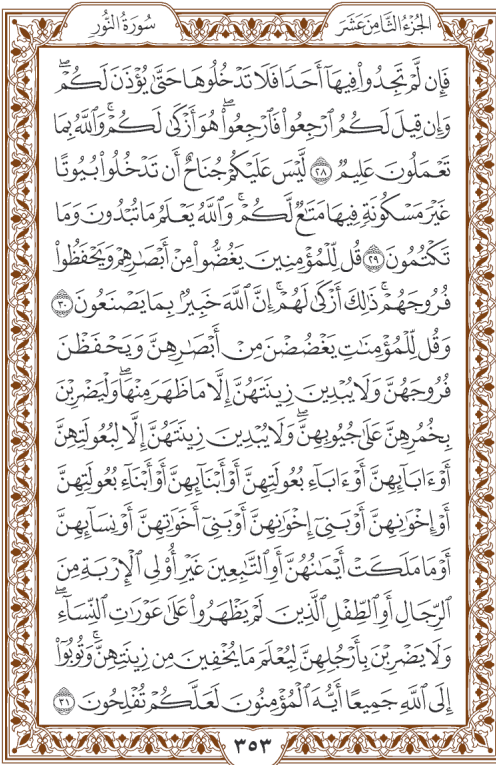 الجُزْءُ الثَّامِنَ عَشَرَ
سُورَةُ النُّورِ
فَإِن لَّمْ تَجِدُوا۟ فِيهَآ أَحَدًا فَلَا تَدْخُلُوهَا حَتَّىٰ يُؤْذَنَ لَكُمْ ۖ
وَإِن قِيلَ لَكُمُ ٱرْجِعُوا۟ فَٱرْجِعُوا۟ ۖ هُوَ أَزْكَىٰ لَكُمْ ۚ وَٱللَّهُ بِمَا
تَعْمَلُونَ عَلِيمٌ ٢٨ لَّيْسَ عَلَيْكُمْ جُنَاحٌ أَن تَدْخُلُوا۟ بُيُوتًا
غَيْرَ مَسْكُونَةٍ فِيهَا مَتَٰعٌ لَّكُمْ ۚ وَٱللَّهُ يَعْلَمُ مَا تُبْدُونَ وَمَا
تَكْتُمُونَ ٢٩ قُل لِّلْمُؤْمِنِينَ يَغُضُّوا۟ مِنْ أَبْصَٰرِهِمْ وَيَحْفَظُوا۟
فُرُوجَهُمْ ۚ ذَٰلِكَ أَزْكَىٰ لَهُمْ ۚ إِنَّ ٱللَّهَ خَبِيرٌۢ بِمَا يَصْنَعُونَ ٣٠
وَقُل لِّلْمُؤْمِنَٰتِ يَغْضُضْنَ مِنْ أَبْصَٰرِهِنَّ وَيَحْفَظْنَ
فُرُوجَهُنَّ وَلَا يُبْدِينَ زِينَتَهُنَّ إِلَّا مَا ظَهَرَ مِنْهَا ۖ وَلْيَضْرِبْنَ
بِخُمُرِهِنَّ عَلَىٰ جُيُوبِهِنَّ ۖ وَلَا يُبْدِينَ زِينَتَهُنَّ إِلَّا لِبُعُولَتِهِنَّ
أَوْ ءَابَآئِهِنَّ أَوْ ءَابَآءِ بُعُولَتِهِنَّ أَوْ أَبْنَآئِهِنَّ أَوْ أَبْنَآءِ بُعُولَتِهِنَّ
أَوْ إِخْوَٰنِهِنَّ أَوْ بَنِىٓ إِخْوَٰنِهِنَّ أَوْ بَنِىٓ أَخَوَٰتِهِنَّ أَوْ نِسَآئِهِنَّ
أَوْ مَا مَلَكَتْ أَيْمَٰنُهُنَّ أَوِ ٱلتَّٰبِعِينَ غَيْرِ أُو۟لِى ٱلْإِرْبَةِ مِنَ
ٱلرِّجَالِ أَوِ ٱلطِّفْلِ ٱلَّذِينَ لَمْ يَظْهَرُوا۟ عَلَىٰ عَوْرَٰتِ ٱلنِّسَآءِ ۖ
وَلَا يَضْرِبْنَ بِأَرْجُلِهِنَّ لِيُعْلَمَ مَا يُخْفِينَ مِن زِينَتِهِنَّ ۚ وَتُوبُوٓا۟
إِلَى ٱللَّهِ جَمِيعًا أَيُّهَ ٱلْمُؤْمِنُونَ لَعَلَّكُمْ تُفْلِحُونَ ٣١
٣٥٣